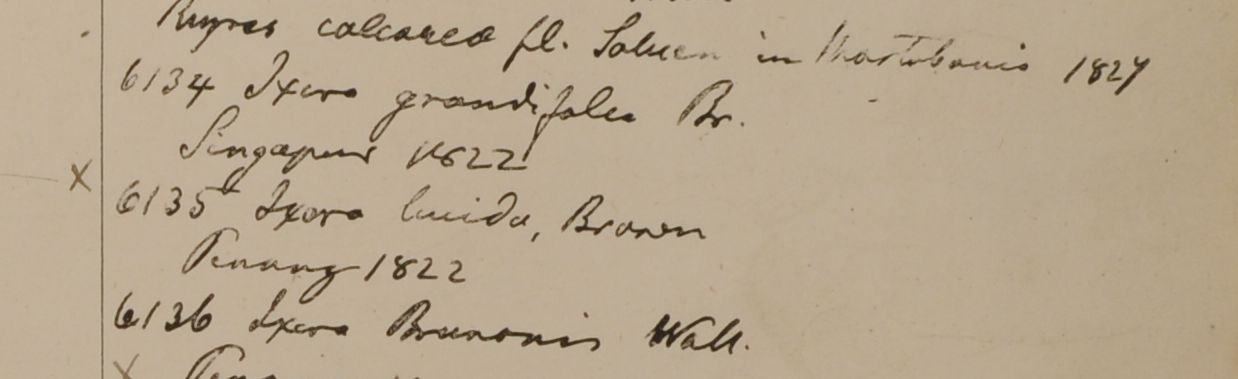 Rupes calcarea fl. Saluen in Martabania 1827
6134 Ixora grandifolia Br.
Singapur 1822
× 6135 Ixora lucida, Brown
Penang 1822
6136 Ixora Brunonis Wall.
× Pena